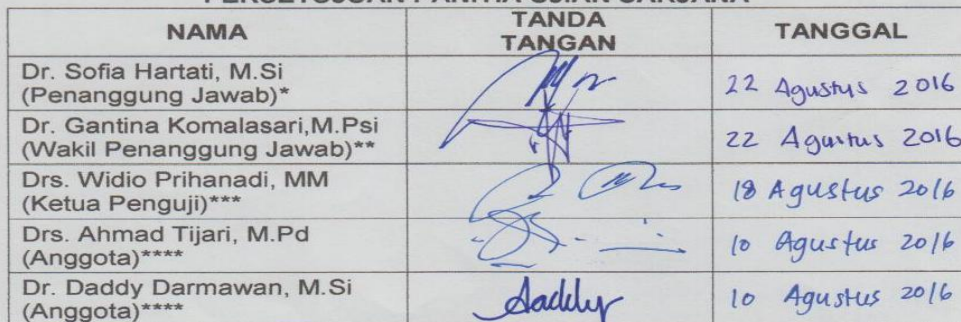 PERSETUJUAN PANITIA UJIAN SARJANA
NAMA
TANDA TANGAN
TANGGAL
Dr. Sofia Hartati, M.Si
(Penanggung Jawab)*
22 Agustus 2016
Dr. Gantina Komalasari,M.Psi
(Wakil Penanggung Jawab)**
22 Agustus 2016
Drs. Widio Prihanadi, MM
(Ketua Penguji)***
18 Agustus 2016
Drs. Ahmad Tijari, M.Pd
(Anggota)****
10 Agustus 2016
Dr. Daddy Darmawan, M.Si
(Anggota)****
Daddy
10 Agustus 2016